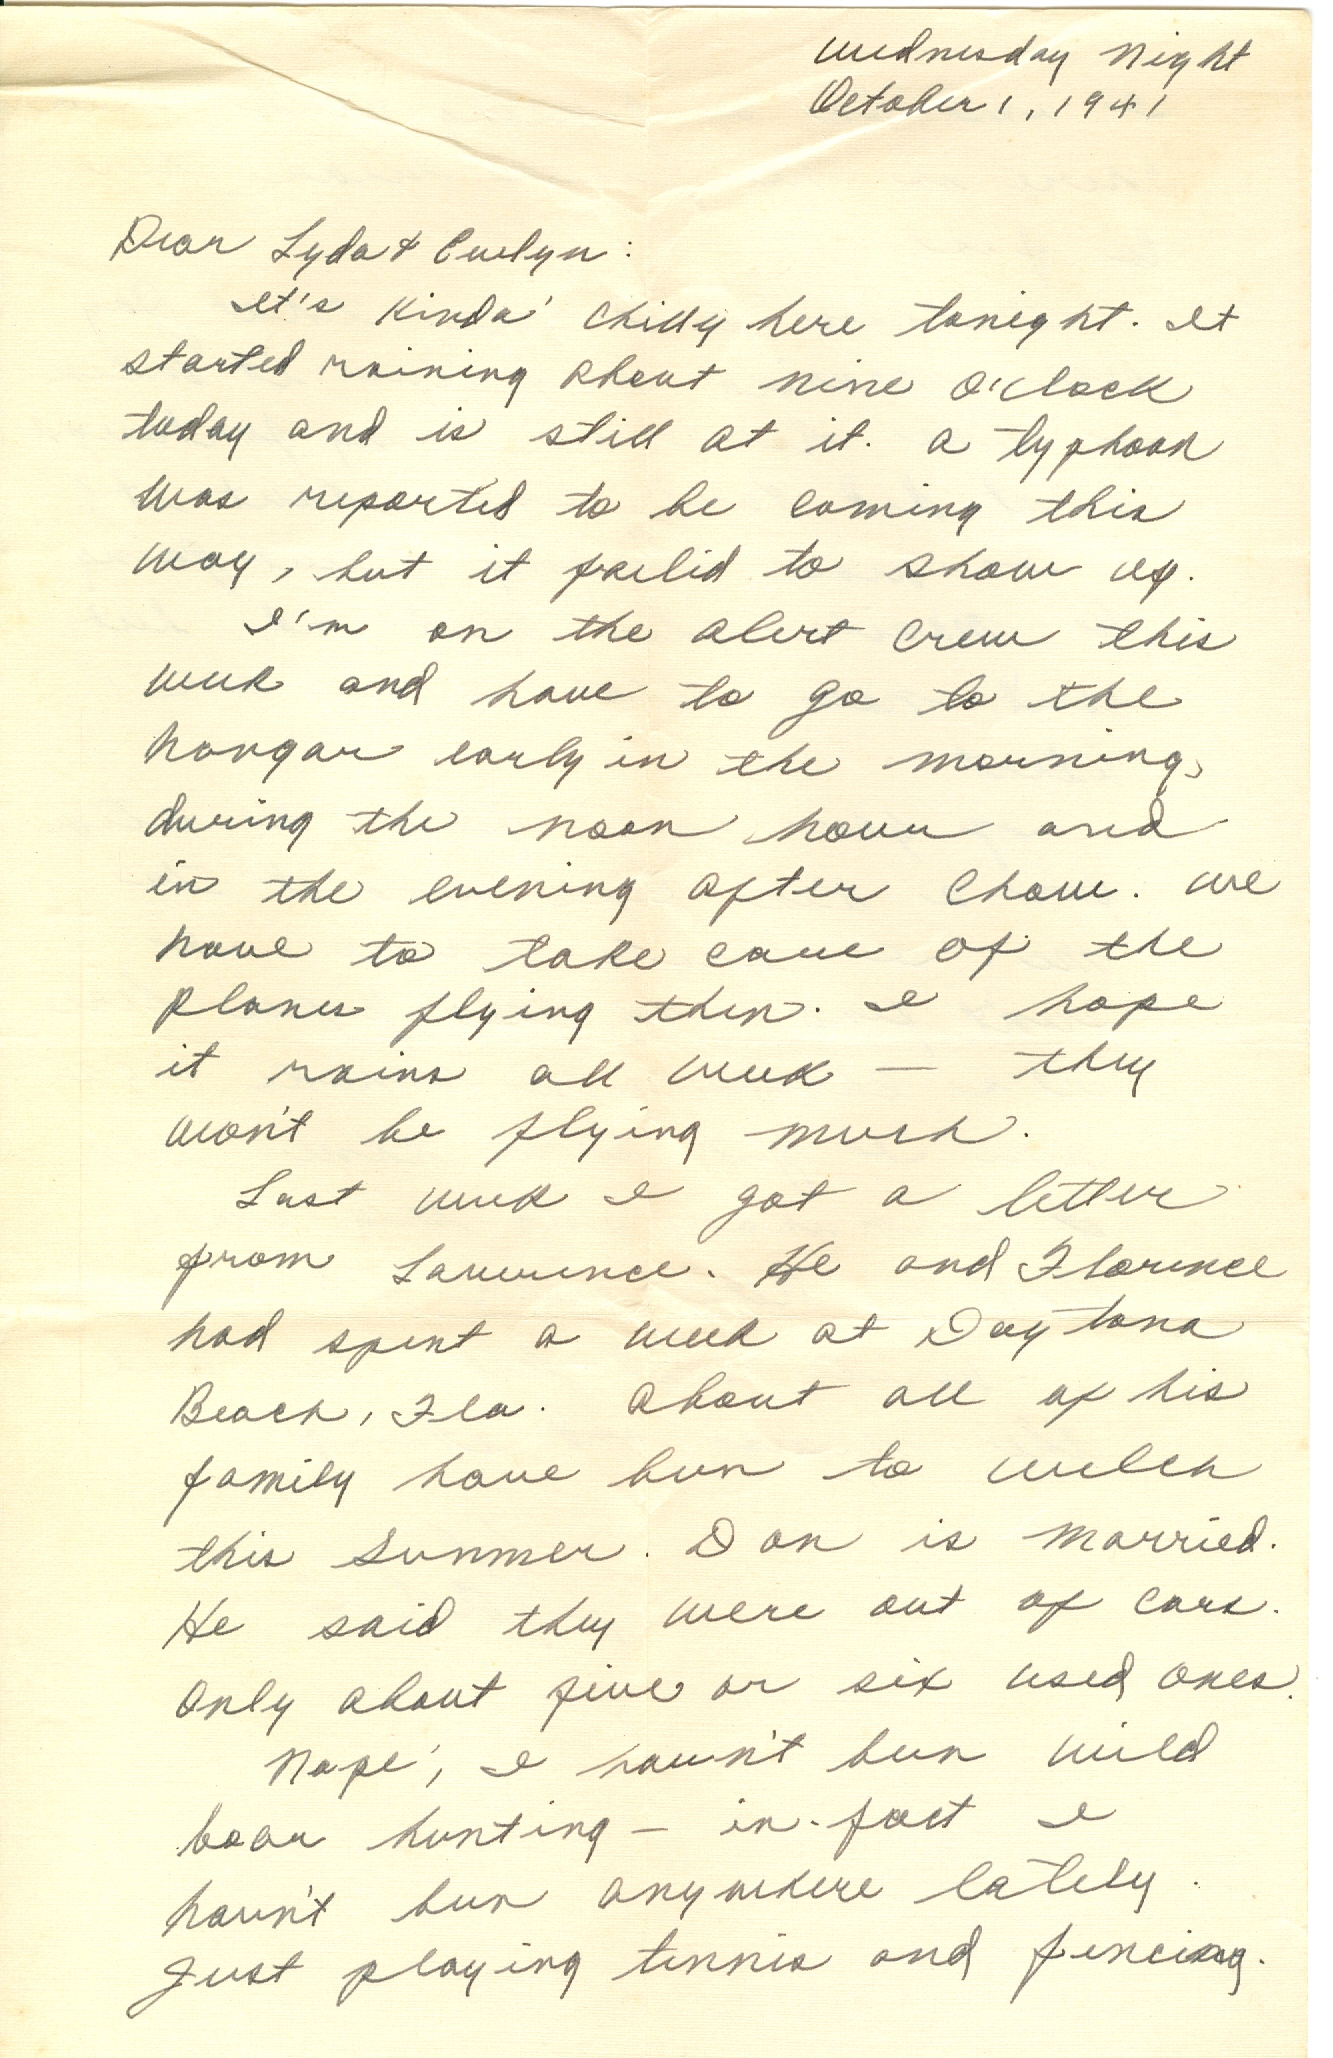 Wednesday Night
October 1, 1941
Dear Lyda & Evelyn:
It's kinda' chilly here tonight. It
started raining about nine o'clock
today and is still at it. A typhoon
was reported to be coming this
way, but it failed to show up.
I'm on the alert crew this
week and have to go to the
hangar early in the morning,
during the noon hour and
in the evening after chow. We
have to take care of the
planes flying then. I hope
it rains all week — they
won't be flying much.
Last week I got a letter
from Lawrence. He and Florence
had spent a week at Daytona
Beach, Fla. About all of his
family have been to Welch
this Summer. Dan is married.
He said they were out of cars.
Only about five or six used ones.
Nope', I haven't been wild
boar hunting — in-fact I
haven't been anywhere lately.
Just playing tennis and fencing.